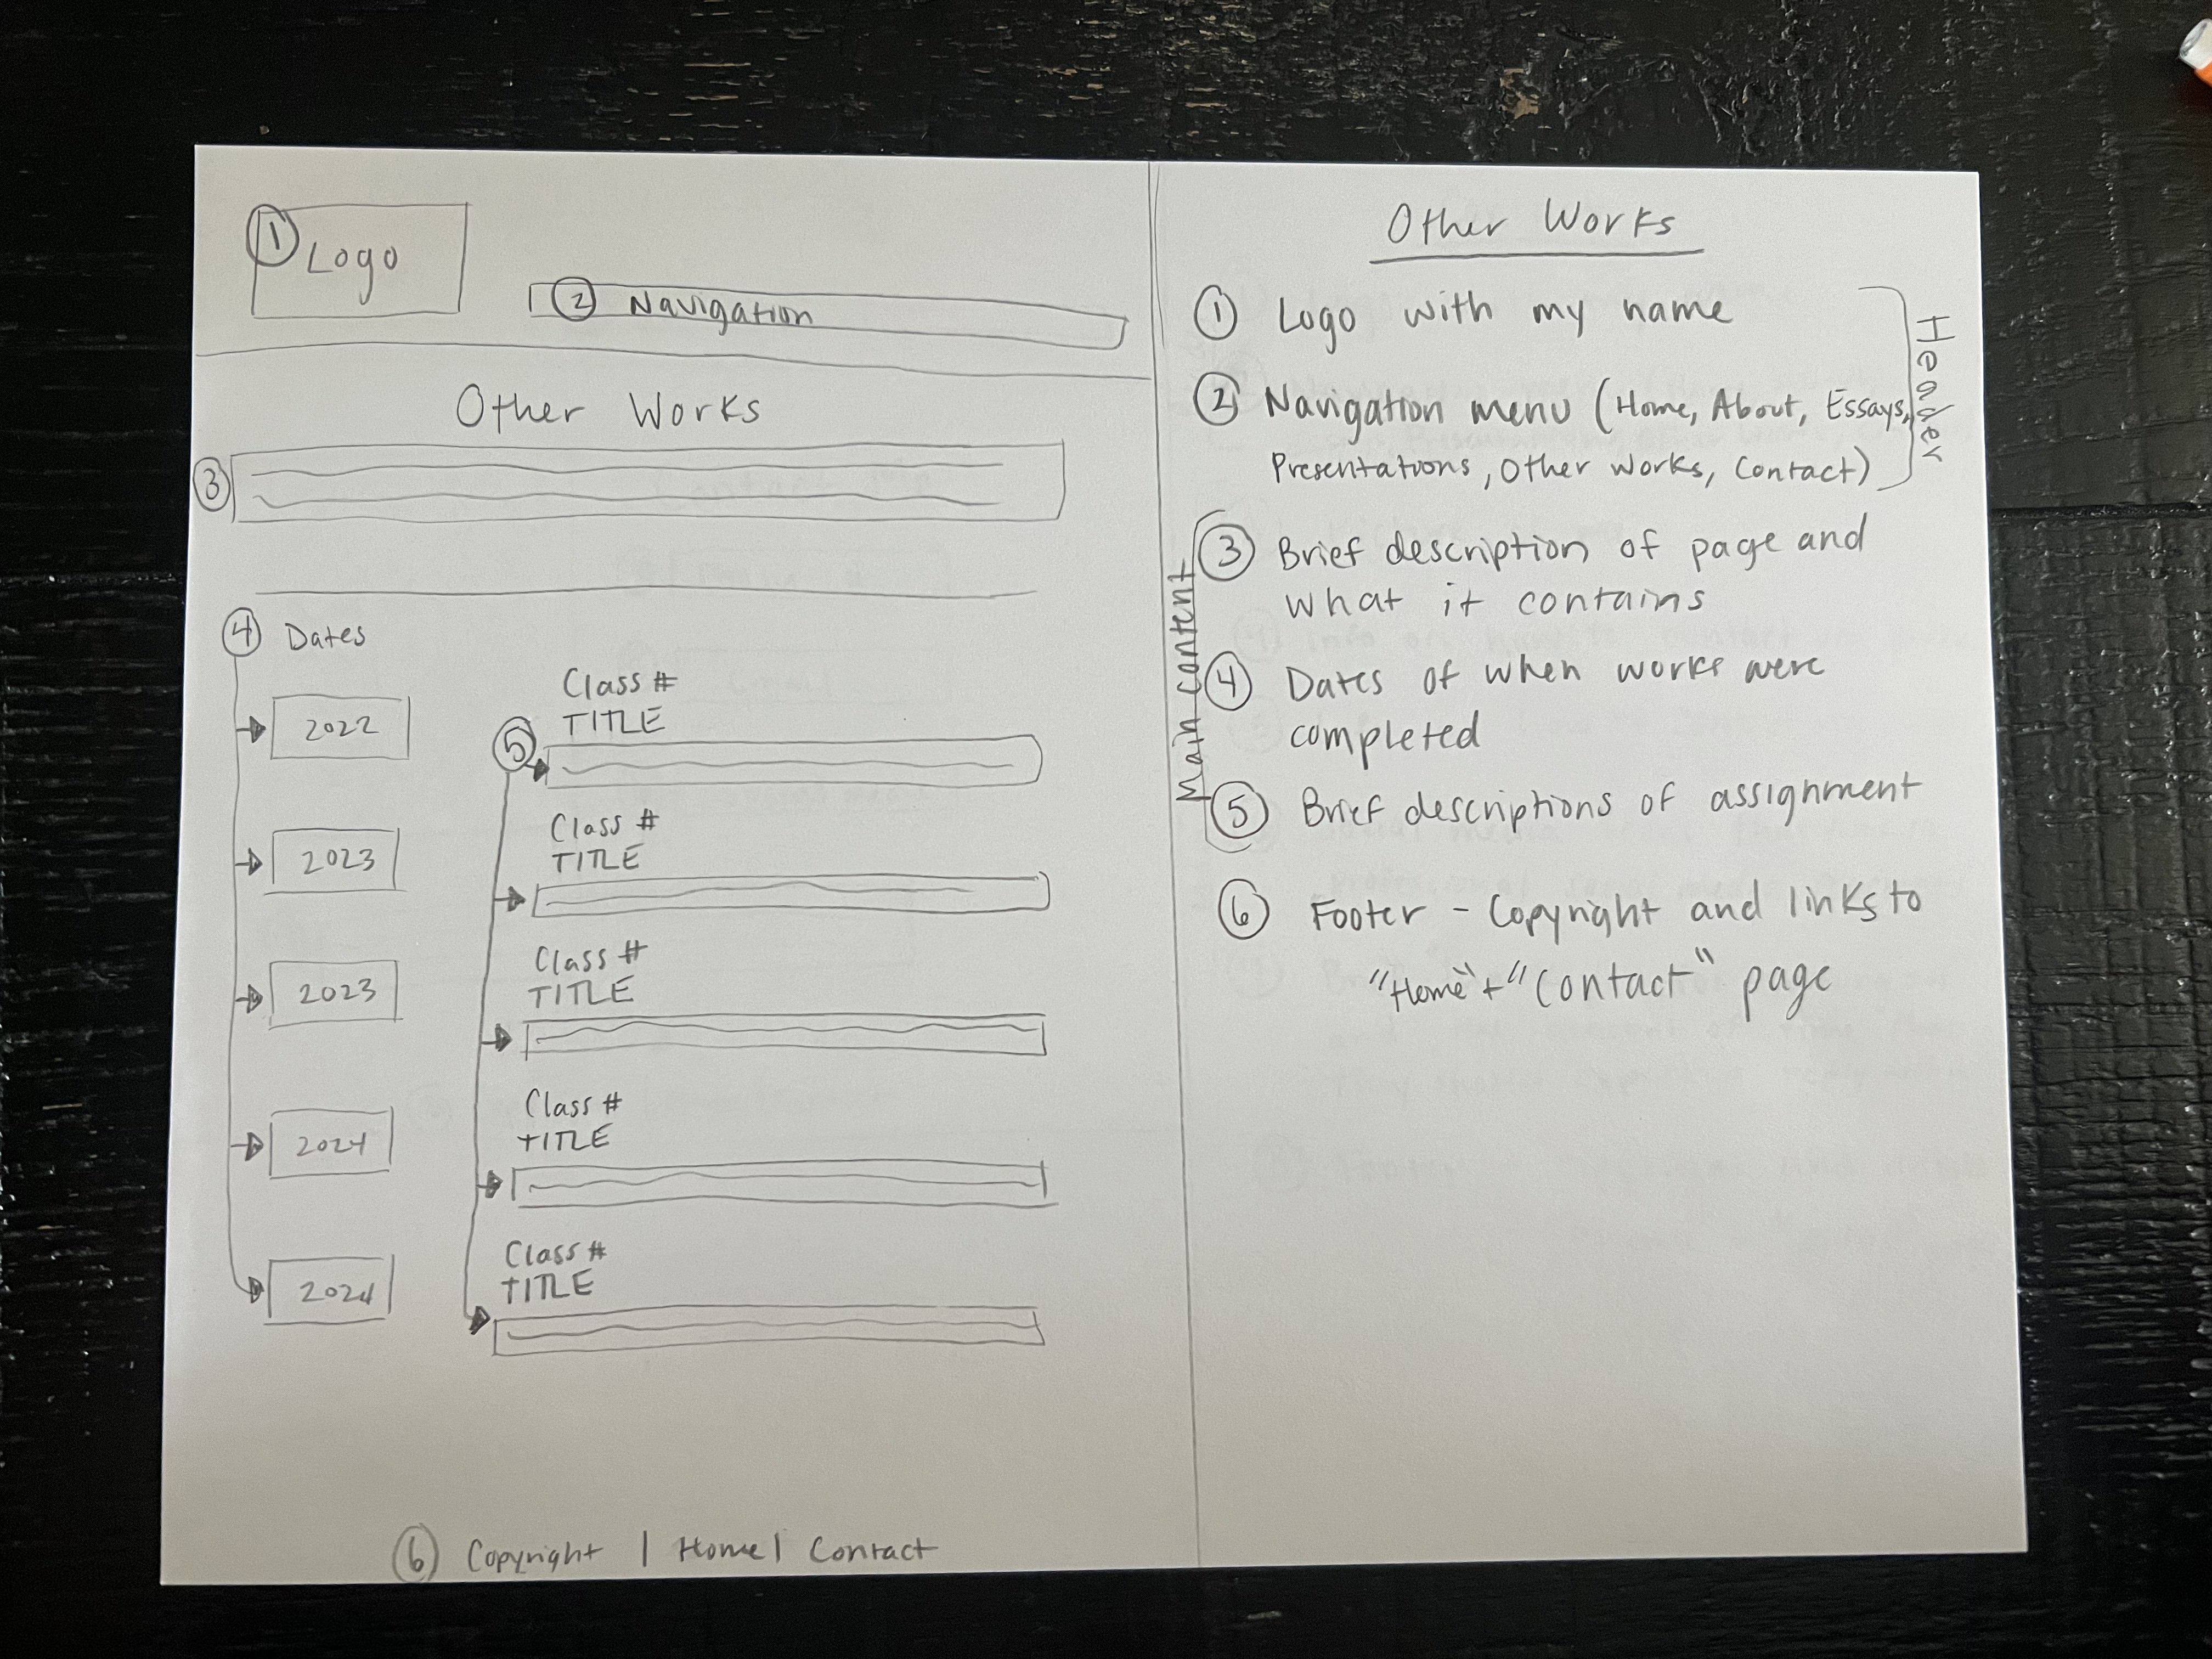 ① Logo
② Navigation
Other Works
③
④ Dates
2022
2023
2023
2024
2024
⑤
Class #
TITLE
Class #
TITLE
Class #
TITLE
Class #
TITLE
Class #
TITLE
⑥ Copyright | Home | Contact
Other Works
① Logo with my name
② Navigation menu (Home, About, Essays,
Presentations, Other Works, Contact)
Header
③ Brief description of page and
what it contains
④ Dates of when works were
completed
⑤ Brief descriptions of assignment
Main content
⑥ Footer - Copyright and links to
"Home" + "Contact" page